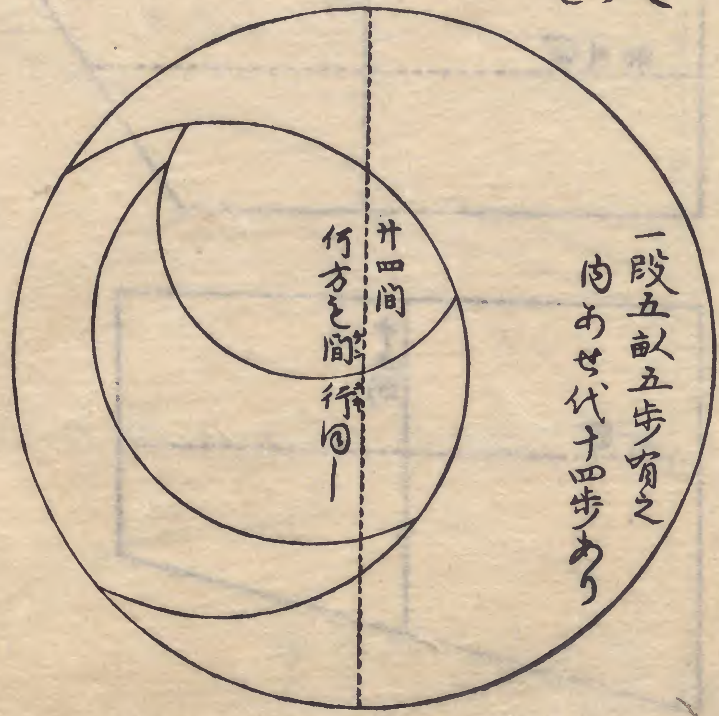 一段五畝五歩有之
内あせ代十四歩あり
廿四間
何方も間行同し